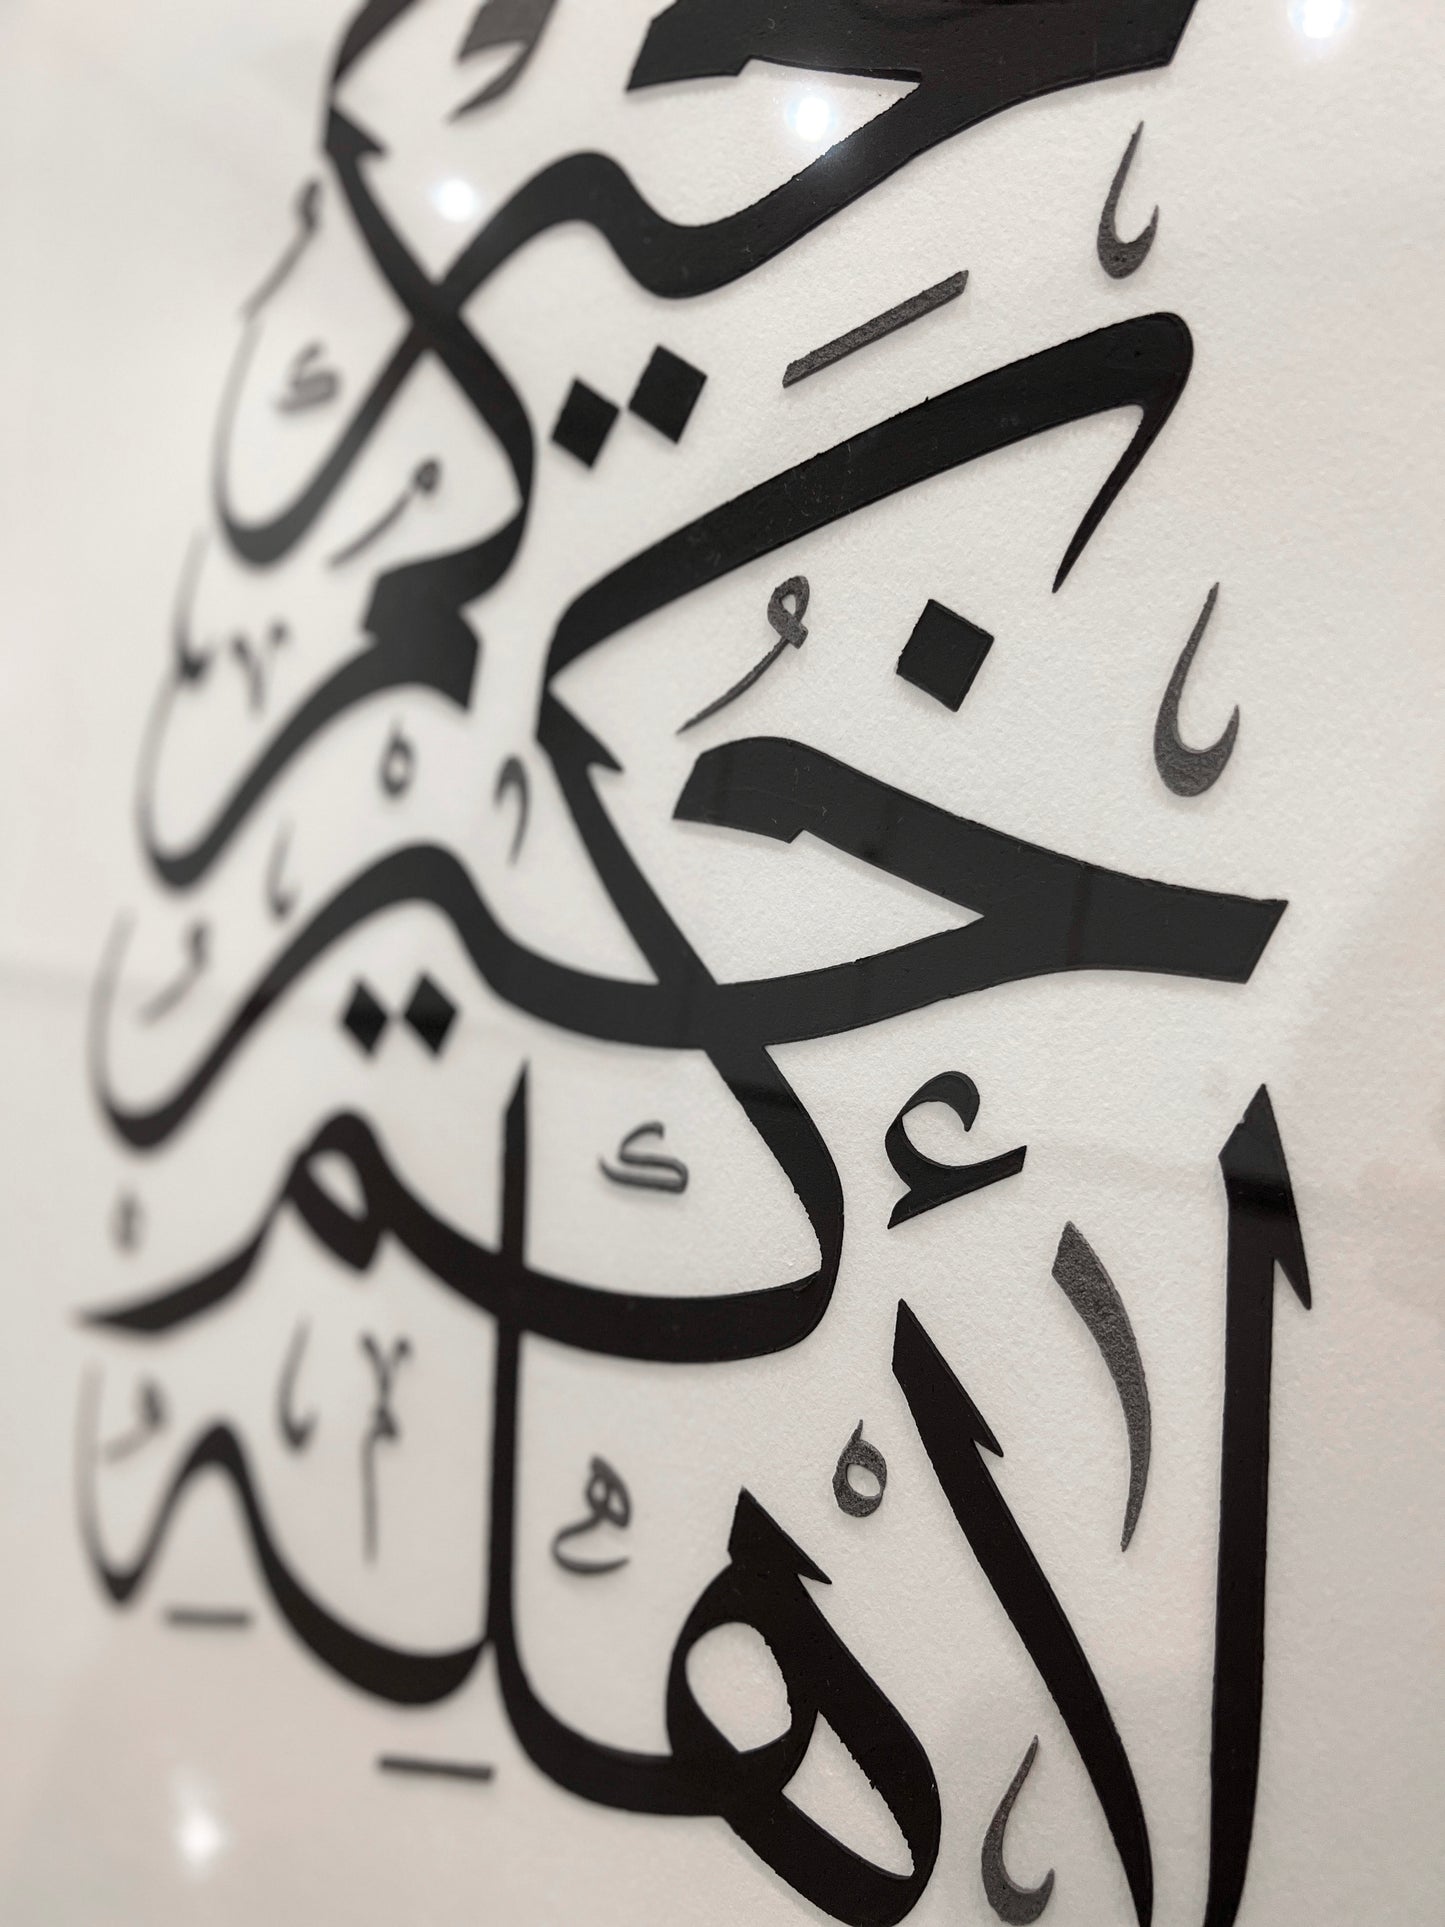 خيركم
خيركم
لأهله